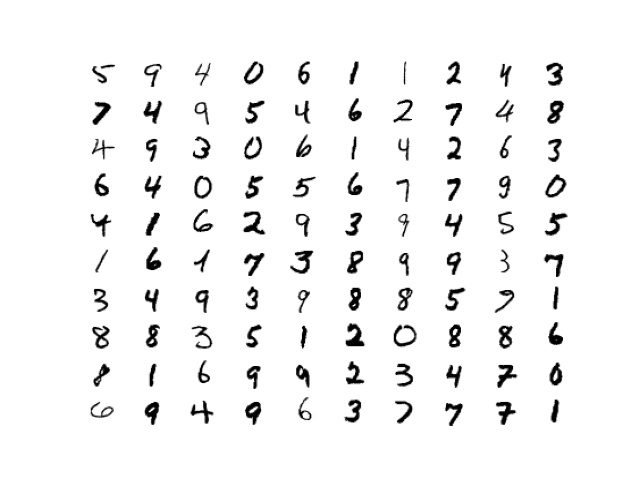 5 9 4 0 6 1 1 2 4 3
7 4 9 5 4 6 2 7 4 8
4 9 3 0 6 1 4 2 6 3
6 4 0 5 5 6 7 7 9 0
4 1 6 2 9 3 9 4 5 5
1 6 1 7 3 8 9 9 3 7
3 4 9 3 9 8 8 5 9 1
8 8 3 5 1 2 0 8 8 6
8 1 6 9 9 2 3 4 7 0
6 9 4 9 6 3 7 7 7 1